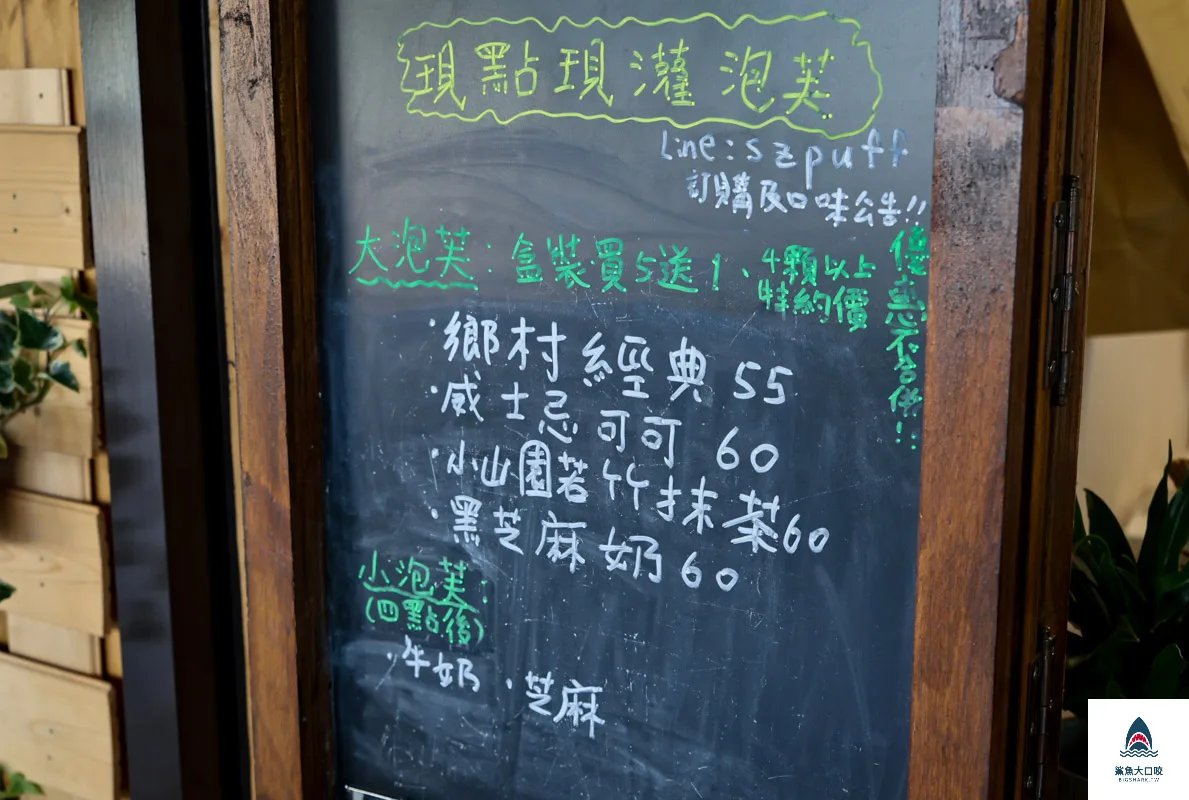 現點現灌泡芙
Line:szpuff
訂購及口味公告!!
大泡芙:盒裝買5送1、4顆以上
特約價
優惠不合併!!
·鄉村經典 55
·威士忌可可 60
·小山園若竹抹茶60
·黑芝麻奶60
小泡芙:
(四點後)
·牛奶 ·芝麻
鯊魚大口咬
BIGSHARK.TW